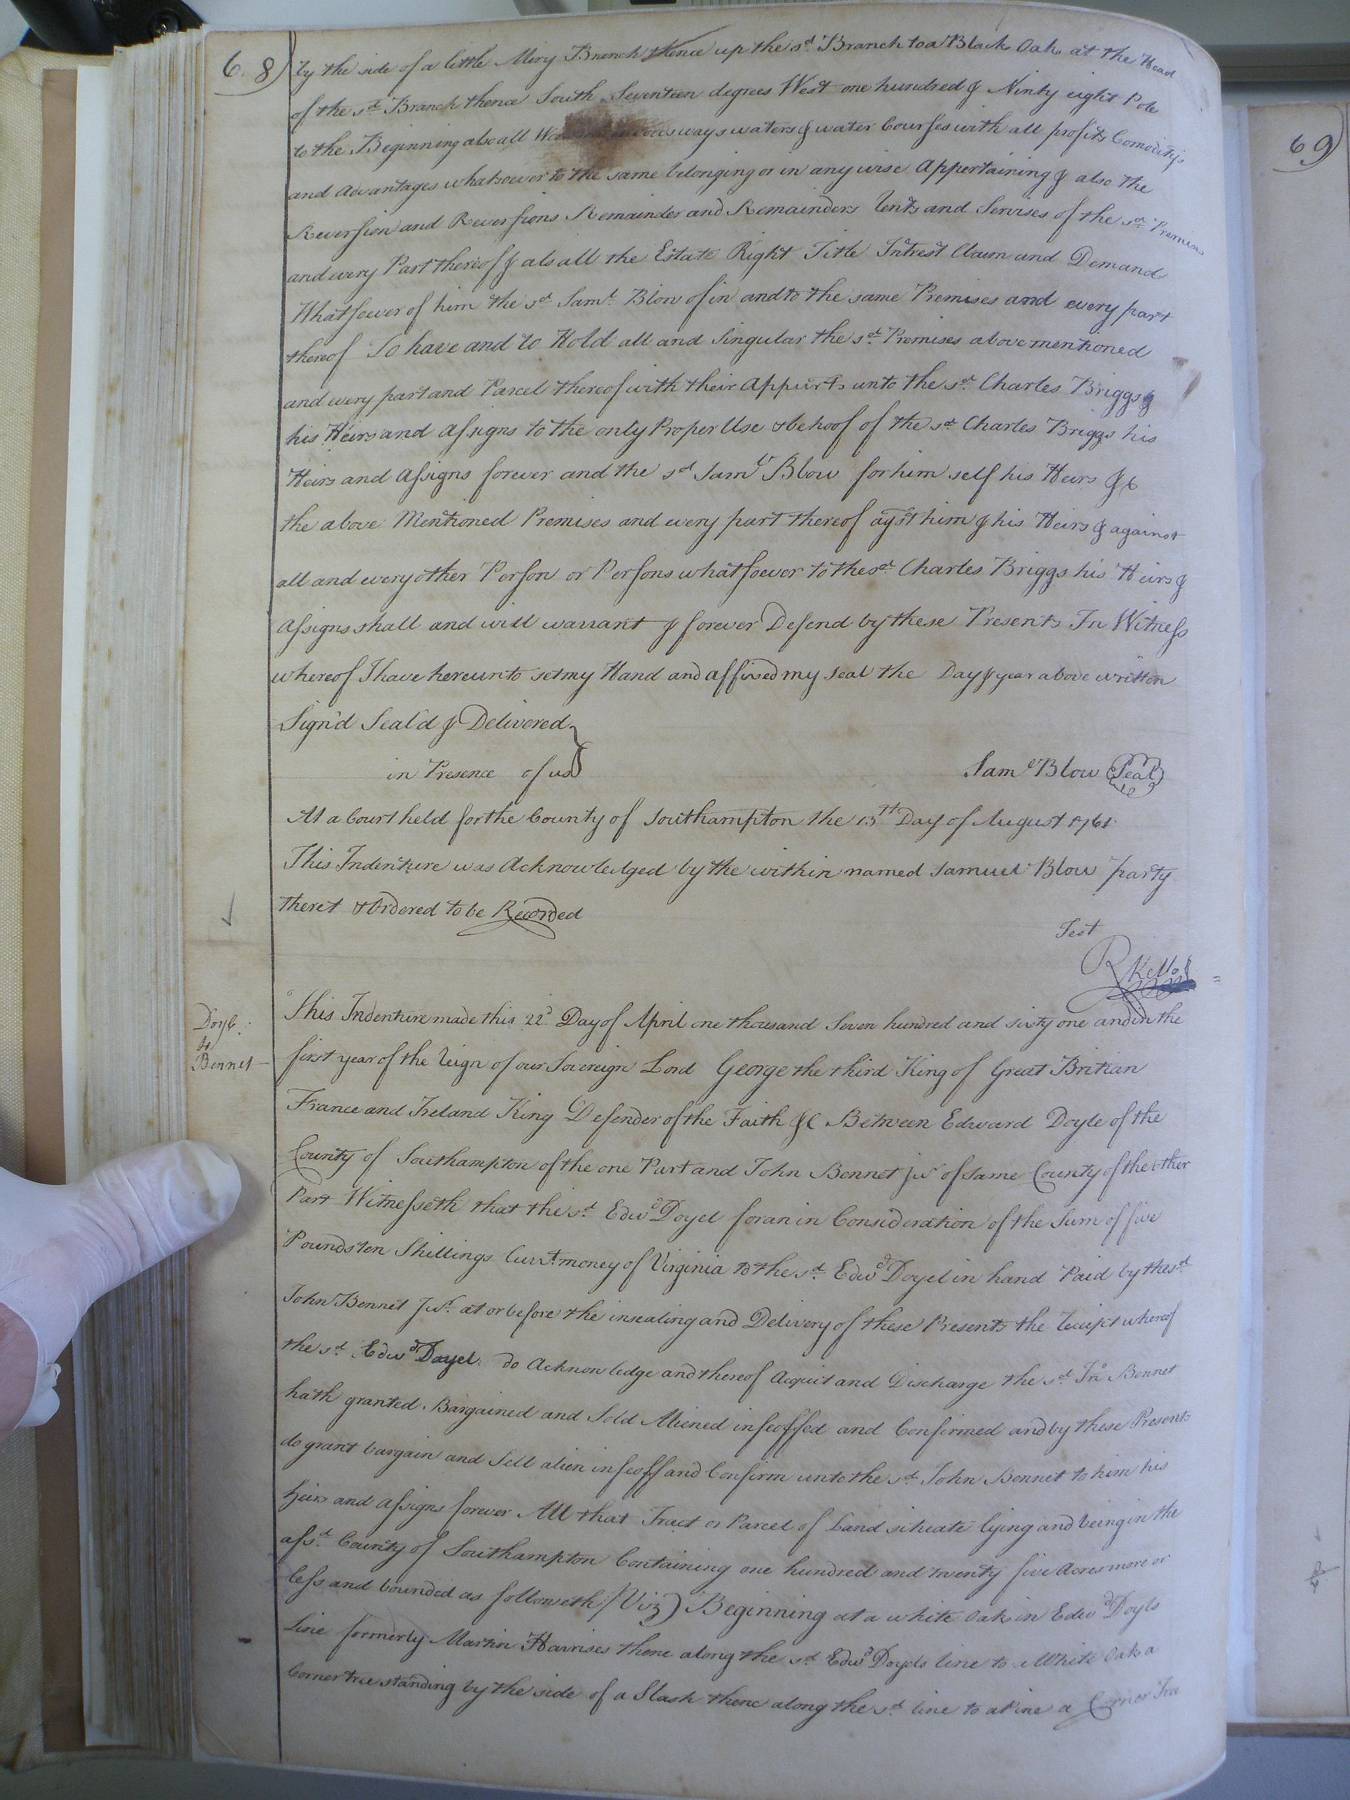 68
by the side of a little Miry Branch thence up the sd. Branch to a Black Oak at the Head
of the sd. Branch thence South Seventeen degrees West one hundred & Ninty eight Pole
to the Beginning also all ways waters & water Courses with all profits Comoditys
and Advantages whatsoever to the same belonging or in any wise Appertaining & also the
Reversion and Reversions Remainder and Remainders Rents and Servises of the sd. Premises
and every Part thereof & als all the Estate Right Title Intrest Claim and Demand
Whatsoever of him the sd. Saml. Blow of in and to the same Premises and every part
thereof To have and to Hold all and Singular the sd. Premises above mentioned
and every part and Parcel thereof with their Appurts unto the sd. Charles Briggs &
his Heirs and Assigns to the only Proper Use & behoof of the sd. Charles Briggs his
Heirs and Assigns forever and the sd. Saml. Blow for him self his Heirs &c
the above Mentioned Premises and every part thereof agst him & his Heirs & against
all and every other Person or Persons whatsoever to the sd. Charles Briggs his Heirs &
Assigns shall and will warrant & forever Defend by these Presents In Witness
whereof I have hereunto set my Hand and affixed my seal the Day & year above written
Sign'd Seal'd & Delivered
in Presence of us
Saml. Blow Seal
At a Court held for the County of Southampton the 13th Day of August 1761
This Indenture was Acknowledged by the within named Samuel Blow party
theret & Ordered to be Recorded
Test
R Kello
Doyl.
to
Bennet
This Indenture made this 22d Day of April one thousand Seven hundred and sixty one and in the
first year of the Reign of our Sovereign Lord George the third King of Great Britian
France and Ireland King Defender of the Faith &C Between Edward Doyle of the
County of Southampton of the one Part and John Bennet Junr of same County of the other
Part Witnesseth that the sd. Edwd Doyel for an in Consideration of the Sum of five
Pounds ten Shillings Currt money of Virginia to the sd. Edwd Doyel in hand Paid by the sd.
John Bennet Junr. at or before the insealing and Delivery of these Presents the Receipt whereof
the sd. Edwd Doyel do Acknowledge and thereof Acquit and Discharge the sd. Jno Bennet
hath granted Bargained and Sold Aliened infeoffed and Confirmed and by these Presents
do grant bargain and Sell alien infeoff and Confirm unto the sd. John Bennet to him his
Heirs and Assigns forever All that Tract or Parcel of Land situate lying and being in the
afsd. County of Southampton Containing one hundred and twenty five Acres more or
less and bounded as followeth (Viz) Beginning at a white Oak in Edwd Doyls
Line formerly Martin Harrises thence along the sd. Edwd Doyels line to a White Oak a
Corner tree standing by the side of a Slash thence along the sd. line to a Pine a Corner Tree
69